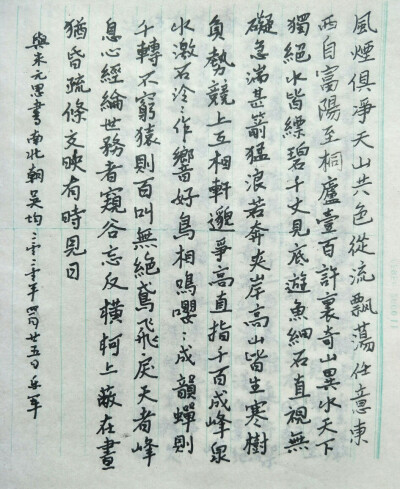 風煙俱凈天山共色從流飄蕩任意東
西自富陽至桐廬壹百許裏奇山異水天下
獨絕水皆縹碧千丈見底遊魚細石直視無
礙急湍甚箭猛浪若奔夾岸高山皆生寒樹
負勢競上互相軒邈爭高直指千百成峰泉
水激石冷:作響好鳥相鳴嚶:成韻蟬則
千轉不窮猿則百叫無絕鳶飛戾天者峰
息心經綸世務者窺谷忘反橫柯上蔽在晝
猶昏疏條交映有時見日
與朱元思書南北朝吳均二零二零年四月廿五日